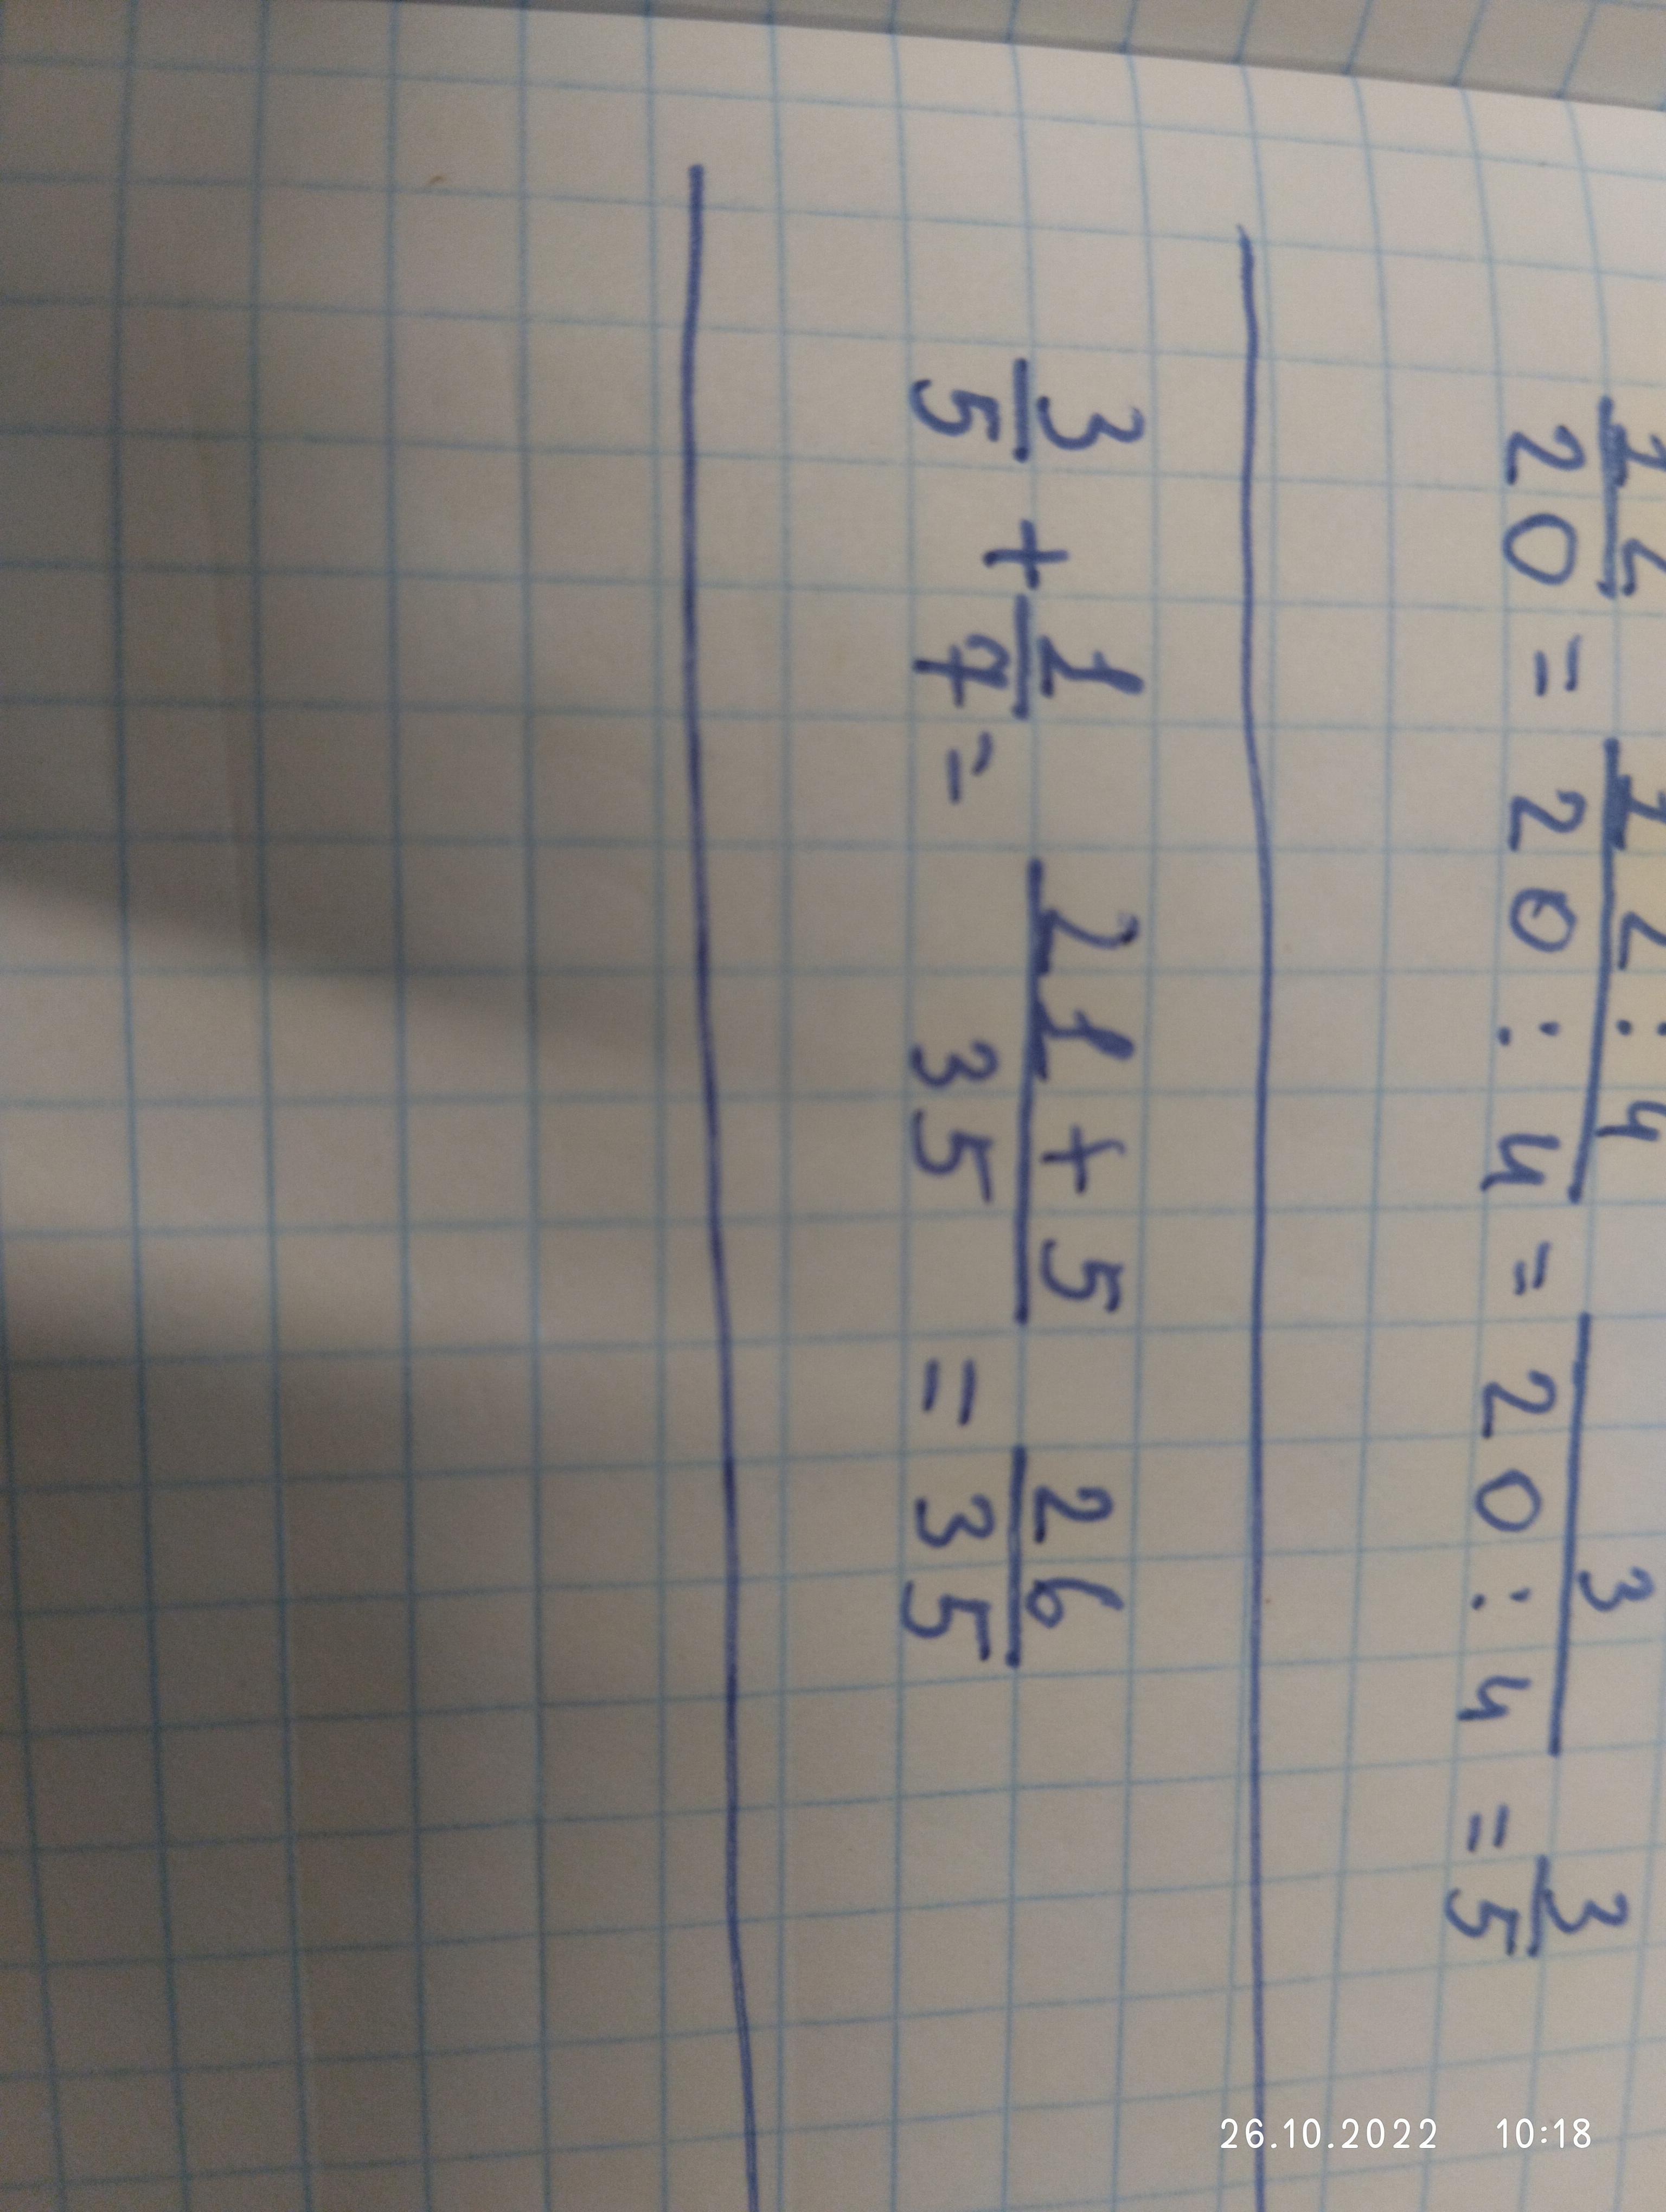 12/20 = 12:4/20:4 = 3/20:4 = 3/5
3/5 + 1/7 = 21+5/35 = 26/35
26.10.2022 10:18